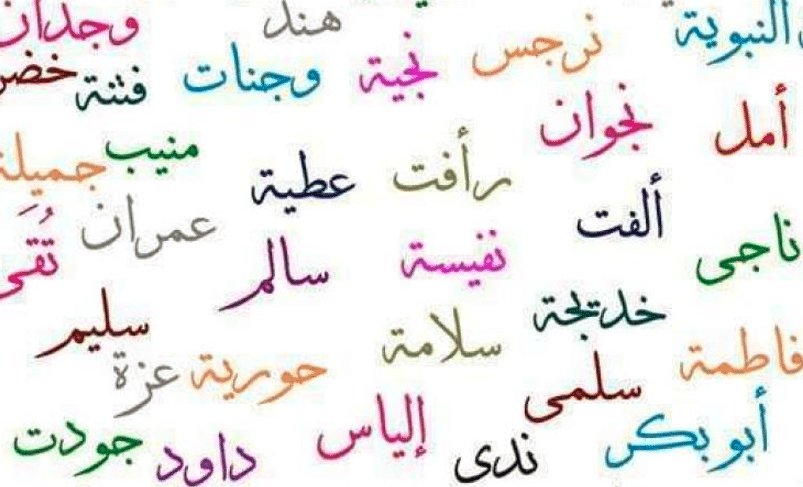 النبوية نرجس هند وجدان
نجية وجنات فتنة
أمل نجوان منيب جميلة
رأفت عطية
ألفت عمران تُقَى
ناجى نفيسة سالم
خديجة سليم
فاطمة سلامة حورية عزة
سلمى
أبو بكر إلياس جودت
ندى داود